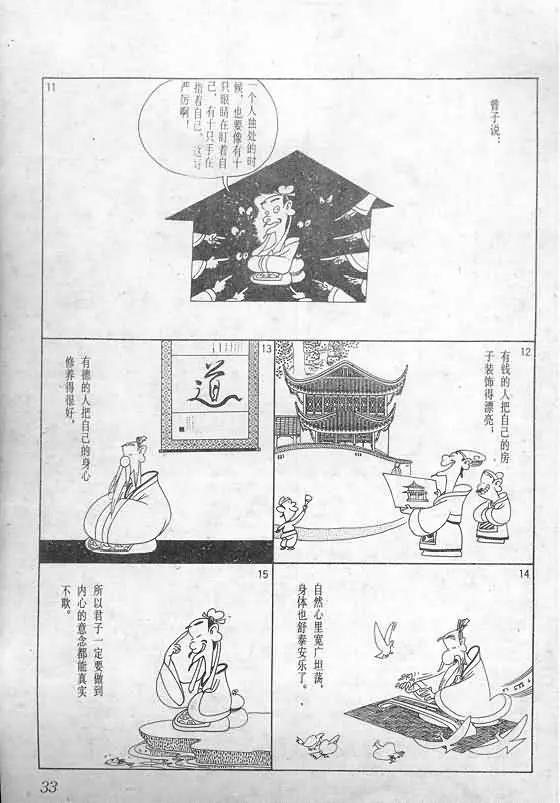 11
曾子说：
一个人独处的时
候，也要像有十
只眼睛在盯着自
己，有十只手在
指着自己，这好
严厉啊！
12
有钱的人把自己的房
子装饰得漂亮；
13
有德的人把自己的身心
修养得很好，
道
14
自然心里宽广坦荡，
身体也舒泰安乐了。
15
所以君子一定要做到
内心的意念都能真实
不欺。
33